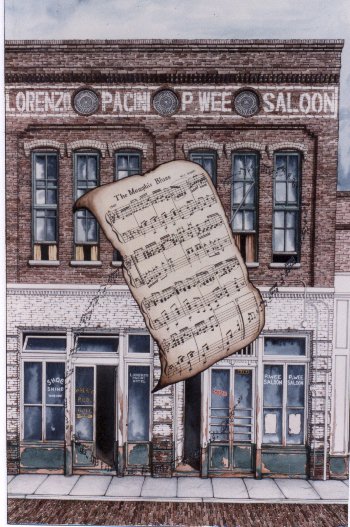 LORENZO PACINI P.WEE SALOON
The Memphis Blues
SHOE
SHINE
P.WEE
SALOON
P.WEE
SALOON